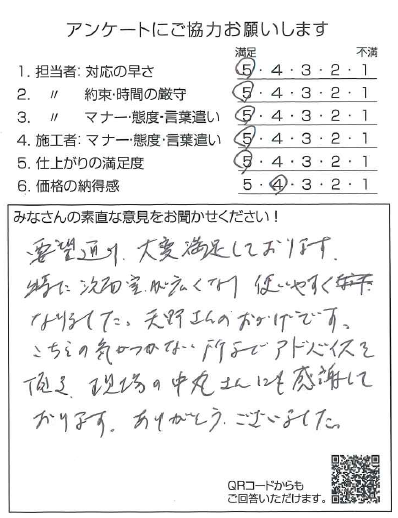 アンケートにご協力お願いします
満足 不満
1. 担当者: 対応の早さ 5・4・3・2・1
2. 〃 約束・時間の厳守 5・4・3・2・1
3. 〃 マナー・態度・言葉遣い 5・4・3・2・1
4. 施工者: マナー・態度・言葉遣い 5・4・3・2・1
5. 仕上がりの満足度 5・4・3・2・1
6. 価格の納得感 5・4・3・2・1
みなさんの素直な意見をお聞かせください!
要望通り、大変満足しております。
特に洗面室が広くなり 使いやすく
なりました。天野さんのおかげです。
こちらの気がつかない所までアドバイスを
頂き、現場の中丸さんにも感謝して
おります。ありがとうございました。
QRコードからも
ご回答いただけます。